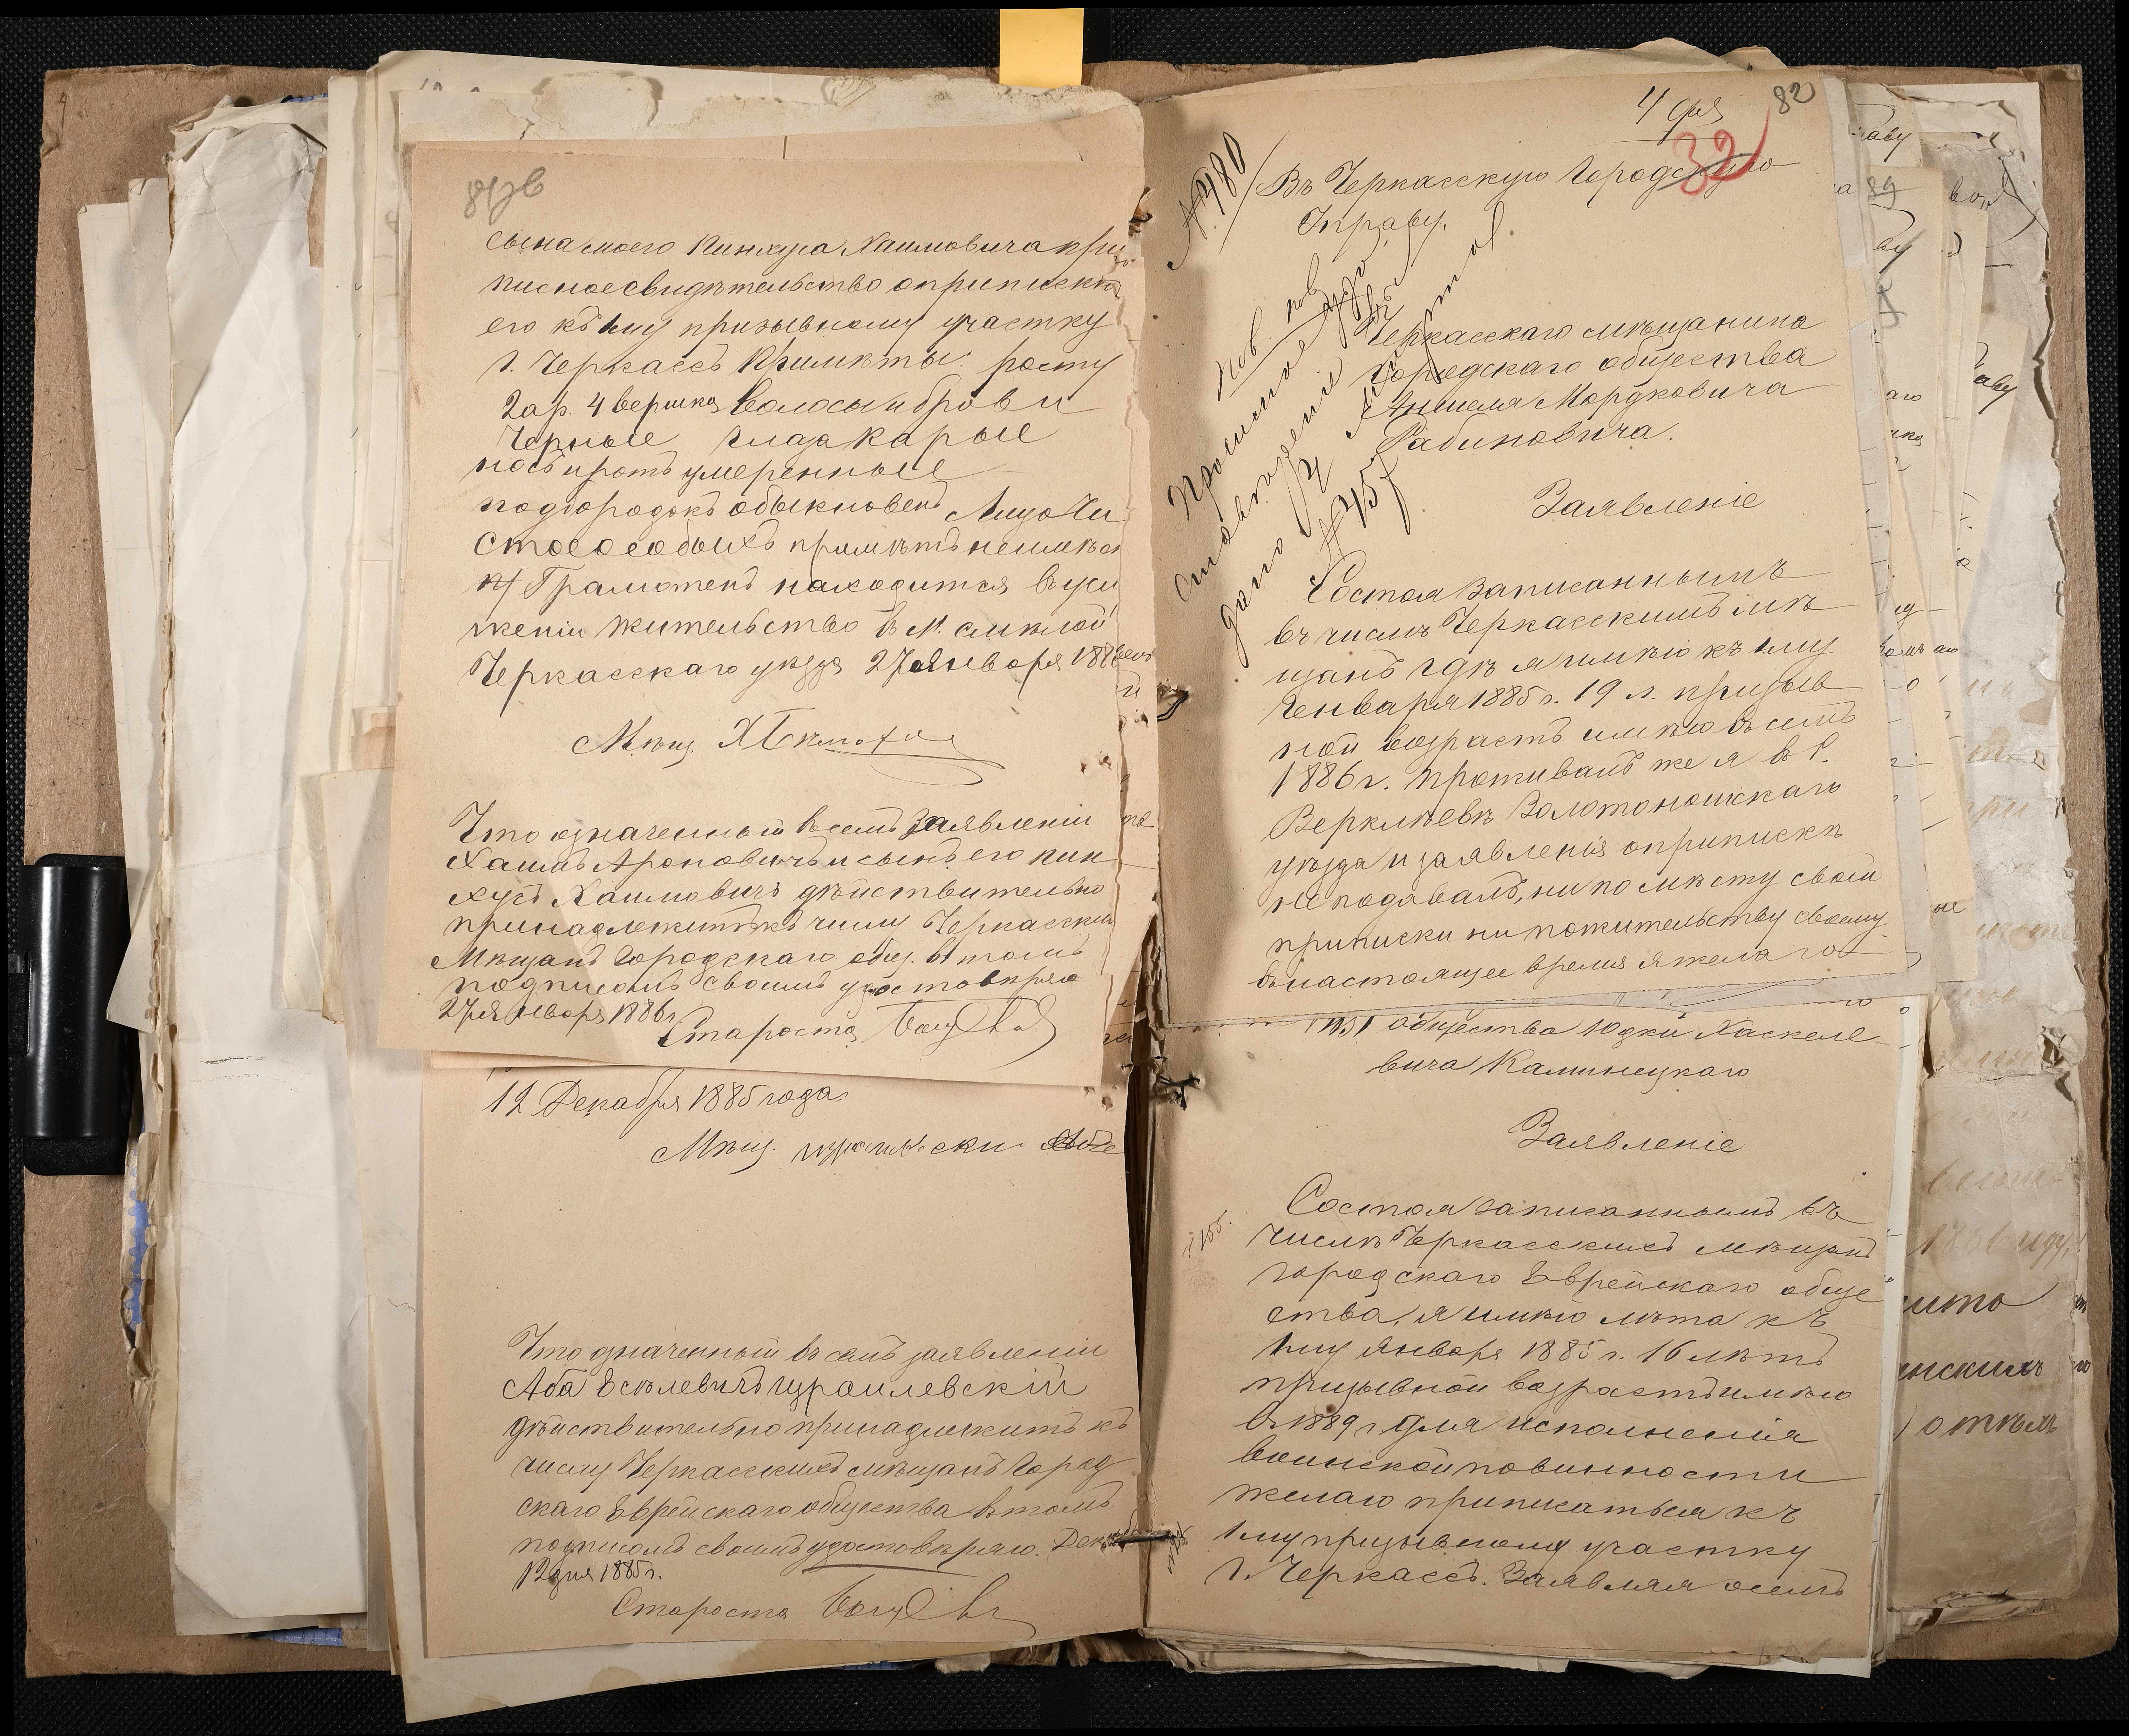 сына моего Пинхуса Хаимовича при
писное свидѣтельство о припискѣ
его къ 1му призывному участку
г. Черкассъ Примѣты: росту
2 ар. 4 вершка волосы и брови
черные глаза карые
носъ и ротъ умеренные
подбородокъ обыкновенъ Лицо чи
стое особыхъ примѣтъ неимѣет
Грамотенъ находится въ услу
жении жительство въ м. Смѣлой
Черкасскаго уѣзда 27 января 1886
Мѣщ.
Что означенный в семъ заявленіи
Хаимъ Ароновичъ и сынъ его Пин
хусъ Хаимовичъ дѣйствительно
принадлежитъ къ числу Черкаскихъ
Мѣщанъ Городскаго общ. в томъ
подписомъ своимъ удостовѣряю
27 января 1886 г
Староста
12 Декабря 1885 года.
Мѣщ.
Что означенный въ семъ заявленіи
Аба Эсѣлевичъ Израилевскій
дѣйствительно принадлежитъ къ
числу Черкасскихъ мѣщанъ Город
скаго Еврейскаго общества в томъ
подписомъ своимъ удостовѣряю.
12 дня 1885 г.
Староста
82
32
№ 480
Въ Черкасскую Городскую
Управу.
Черкасскаго мѣщанина
городскаго общества
Аншеля Мордковича
Рабиновича.
Заявленіе
Состоя записаннымъ
въ числѣ Черкасскимъ мѣ
щанъ гдѣ я имѣю къ 1му
Генваря 1885 г. 19 л. призыв
ной возрастъ имѣю в семъ
1886 г. проживалъ же я в с.
Веркліевѣ Золотоношскаго
уѣзда и заявленія о припискѣ
не подавалъ, ни по мѣсту свой
приписки ни по жительству своему
в настоящее время я желаю
общества Юдки Хаскеле
вича Каминецкаго
Заявленіе
Состоя записаннымъ въ
числѣ Черкасскихъ мѣщанъ
городскаго Еврейскаго обще
ства, я имѣю лѣта къ
1му Января 1885 г. 16 лѣтъ
призывной возрастъ имѣю
в 1889 г. для исполненія
воинской повинности
желаю приписаться къ
1му призывному участку
г. Черкассъ. Заявляя о семъ